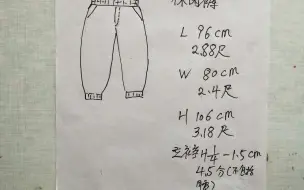 休闲裤
L 96cm
2.88尺
W 80cm
2.4尺
H 106cm
3.18尺
立裆H¼-1.5cm
4.5分(不包括
腰)